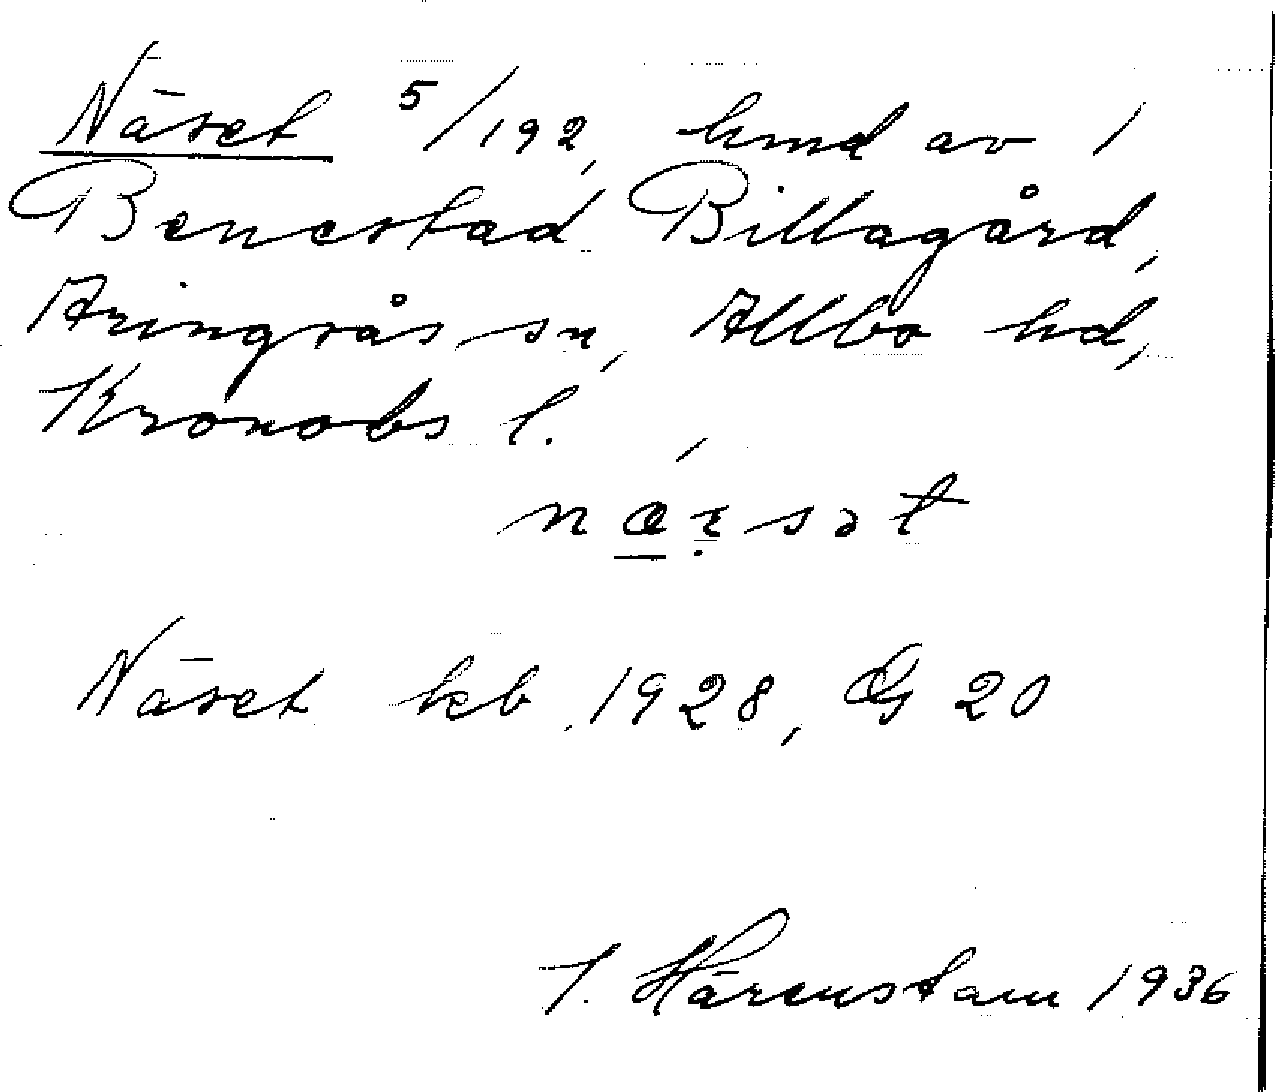 Näset 5/192, hmd av 1
Benestad Billagård,
Aringsås sn, Allbo hd,
Kronobs l.
næ̱ṛsət
Näset kb 1928, G 20
J. Härenstam 1936